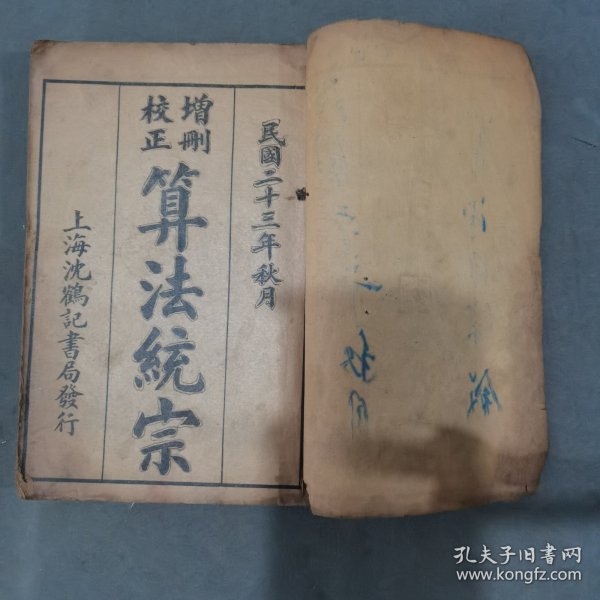 民國二十三年秋月
增刪
校正
算法統宗
上海沈鶴記書局發行
孔夫子旧书网
www.kongfz.com